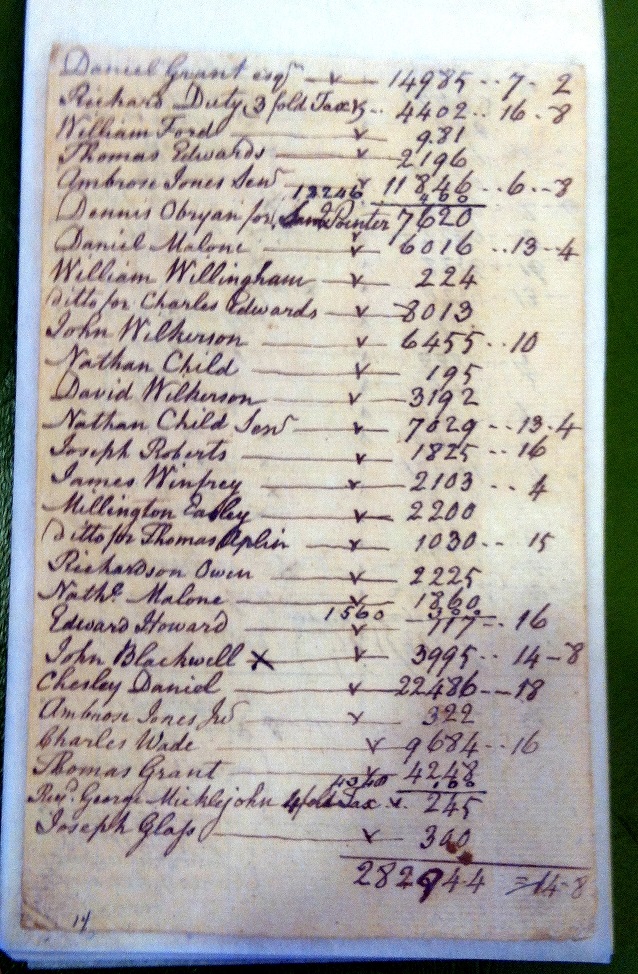 Daniel Grant esqr — v — 14985 .. 7 - 2
Richard Duty 3 fold Tax v .. 4402 .. 16 - 8
William Ford — v — 981
Thomas Edwards — v — 2196
Ambrose Jones Senr — v 11846 .. 6 .. 8
12246 400
Dennis Obryan for Saml Pointer 7620
Daniel Malone — v — 6016 .. 13 - 4
William Willingham — v — 224
Ditto for Charles Edwards — v — 8013
John Wilkerson — v — 6455 .. 10
Nathan Child — v — 195
David Wilkerson — v — 3192
Nathan Child Senr — v — 7029 .. 13 - 4
Joseph Roberts — v — 1825 .. 16
James Winfrey — v — 2103 .. 4
Millington Easley — v — 2200
Ditto for Thomas Aplin — v — 1030 .. 15
Richardson Owen — v — 2225
Nathl Malone — v — 1860
1560
Edward Howard — v — 117 .. 16
John Blackwell X — v — 3995 .. 14 - 8
Chesley Daniel — v — 22486 — 18
Ambrose Jones Jr — v — 322
Charles Wade — v — 9684 .. 16
Thomas Grant — v — 4248
4340
Revd. George Micklejohn 4 fold Tax v. 245
Joseph Glass — v — 300
282944 = 14 - 8
14